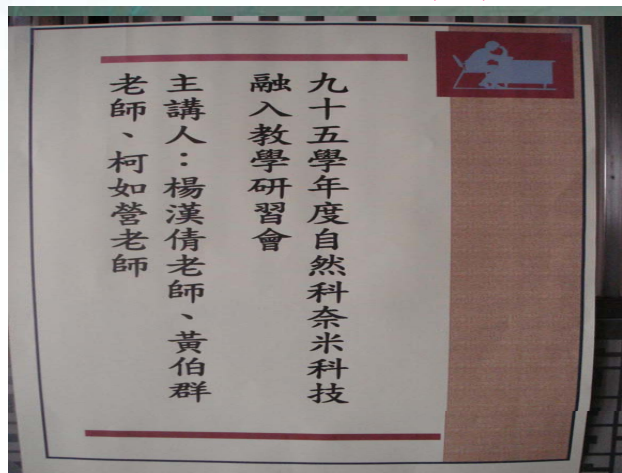 九十五學年度自然科奈米科技
融入教學研習會
主講人：楊漢倩老師、黃伯群
老師、柯如營老師